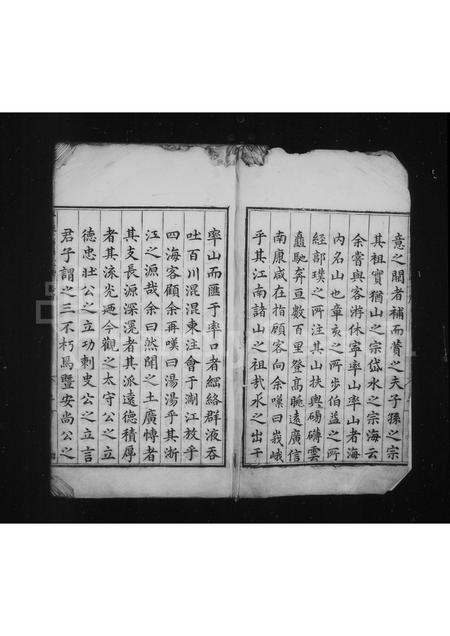 意之闕者補而贊之夫子孫之宗
其祖實猶山之宗岱水之宗海云
余嘗與客游休寧率山率山者海
內名山也章亥之所步伯益之所
經郭璞之所注其山扶輿磅礴雲
矗馳奔亘數百里登高眺遠廣信
南康咸在指顧客向余嘆曰峩峨
乎其江南諸山之祖哉水之出于
率山而匯于率口者綑絡群液吞
吐百川混混東注會于淛江放乎
四海客顧余再嘆曰湯湯乎其浙
江之源哉余曰然聞之土廣慱者
其支長源深濬者其派遠德積厚
者其流光廼今觀之太守公之立
德忠壯公之立功刺史公之立言
君子謂之三不朽焉暨安尚公之